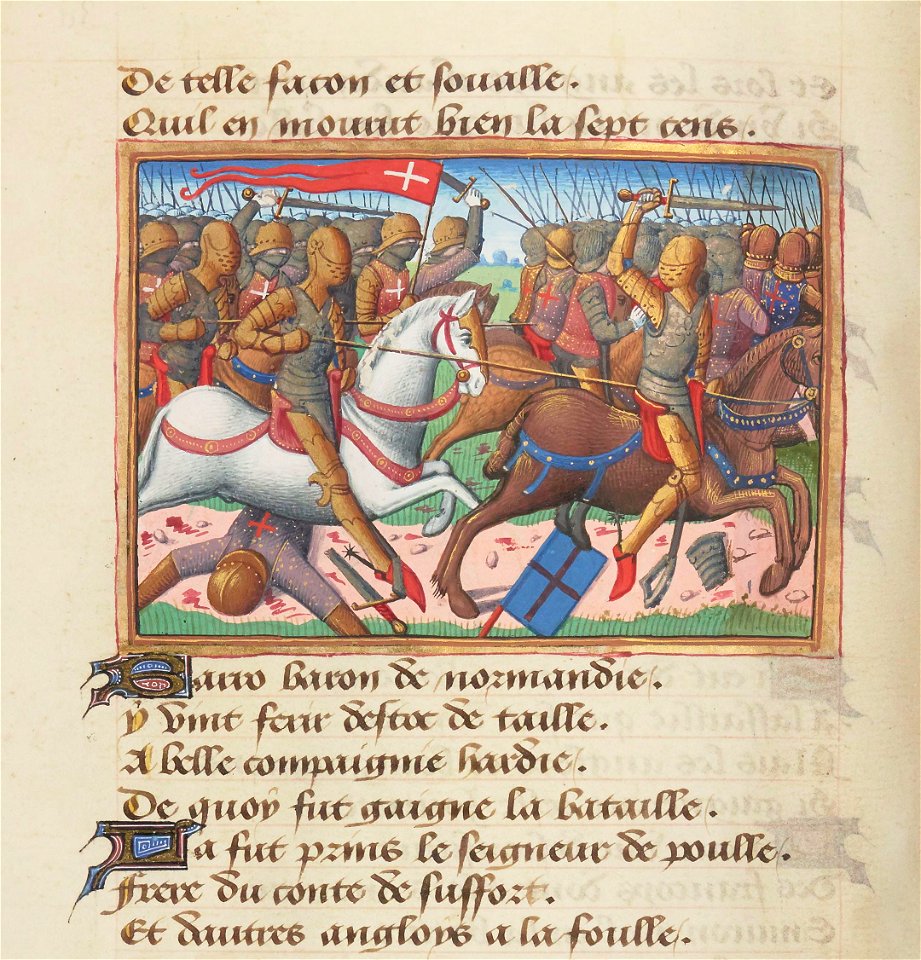 De telle facon et soualle.
Quil en mourut bien la sept cens.
baron de normandie.
y vint ferir destoc de taille.
A belle compaignie hardie.
De quoy fut gaigne la bataille.
La fut prins le seigneur de poulle.
frere du conte de suffort.
Et dautres angloys a la foulle.